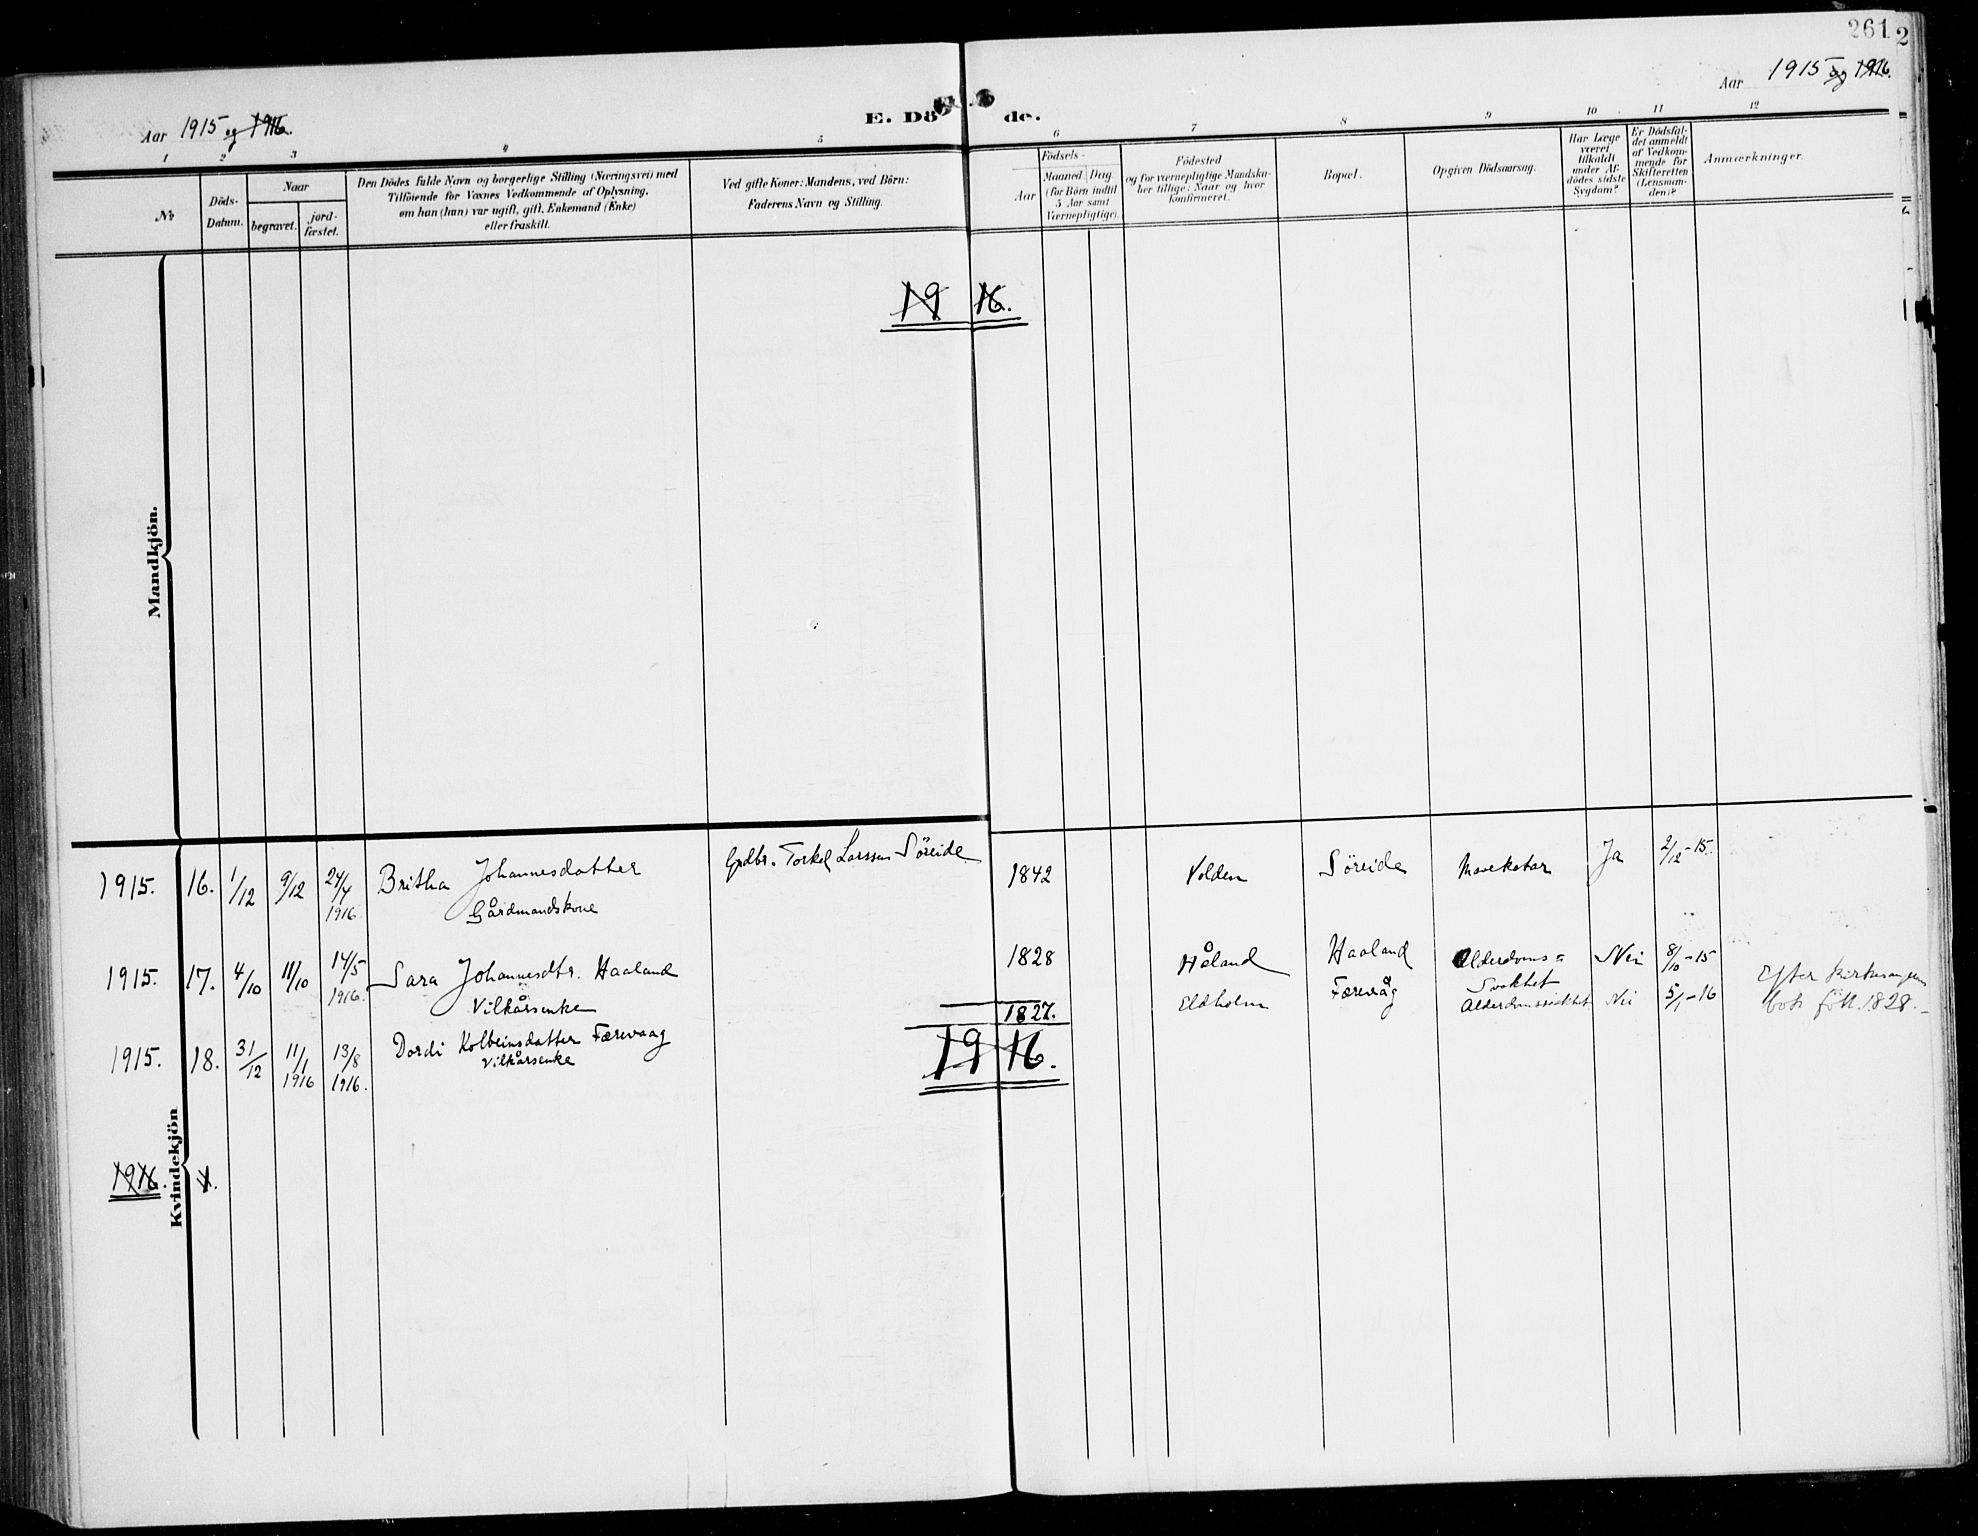 261
2
Aar 1915 og 1916.
Aar 1915 og 1916.
E. Dö de.
1 2 3 4 5 6 7 8 9 10 11 12
No
Döds-
Datum.
Naar
begravet.
jord-
fæstet.
Den Dödes fulde Navn og borgerlige Stilling (Næringsvei) med
Tilföiende for Voxnes Vedkommende af Oplysning,
om han (hun) var ugift, gift, Enkemand (Enke)
eller fraskilt.
Ved gifte Koner: Mandens, ved Börn:
Faderens Navn og Stilling.
Födsels-
Aar
Maaned Dag
(for Börn indtil
5 Aar samt
Værnepligtige).
Födested
og for værnepligtige Mandska-
ber tillige: Naar og hvor
konfirmeret.
Bopæl.
Opgiven Dödsaarsag.
Har Læge
været
tilkaldt
under Af-
dödes sidste
Sygdom?
Er Dödsfal-
det anmeldt
af Vedkom-
mende for
Skifteretten
(Lensman-
den)?
Anmærkninger.
Mandkjön.
19 16.
1915. 16. 1/12 9/12 24/4 1916 Britha Johannesdatter Grdbr. Torkel Larssen Söreide 1842 Volden Söreide Mavekatar Ja 2/12-15.
Gårdmandskone
1915. 17. 4/10 11/10 14/5 1916. Sara Johannesdtr. Haaland 1828 Håland Haaland Alderdoms= Nei 8/10-15
Vilkårsenke Svakhet
1915. 18. 31/12 11/1 1916 13/8 1916. Dordi Kolbeinsdatter Færevaag 1827. Eldholm Færevåg Alderdomssvakhet Nei 5/1-16 Efter
Vilkårsenke bok född 1828.
19 16.
Kvindekjön
1916. 1.